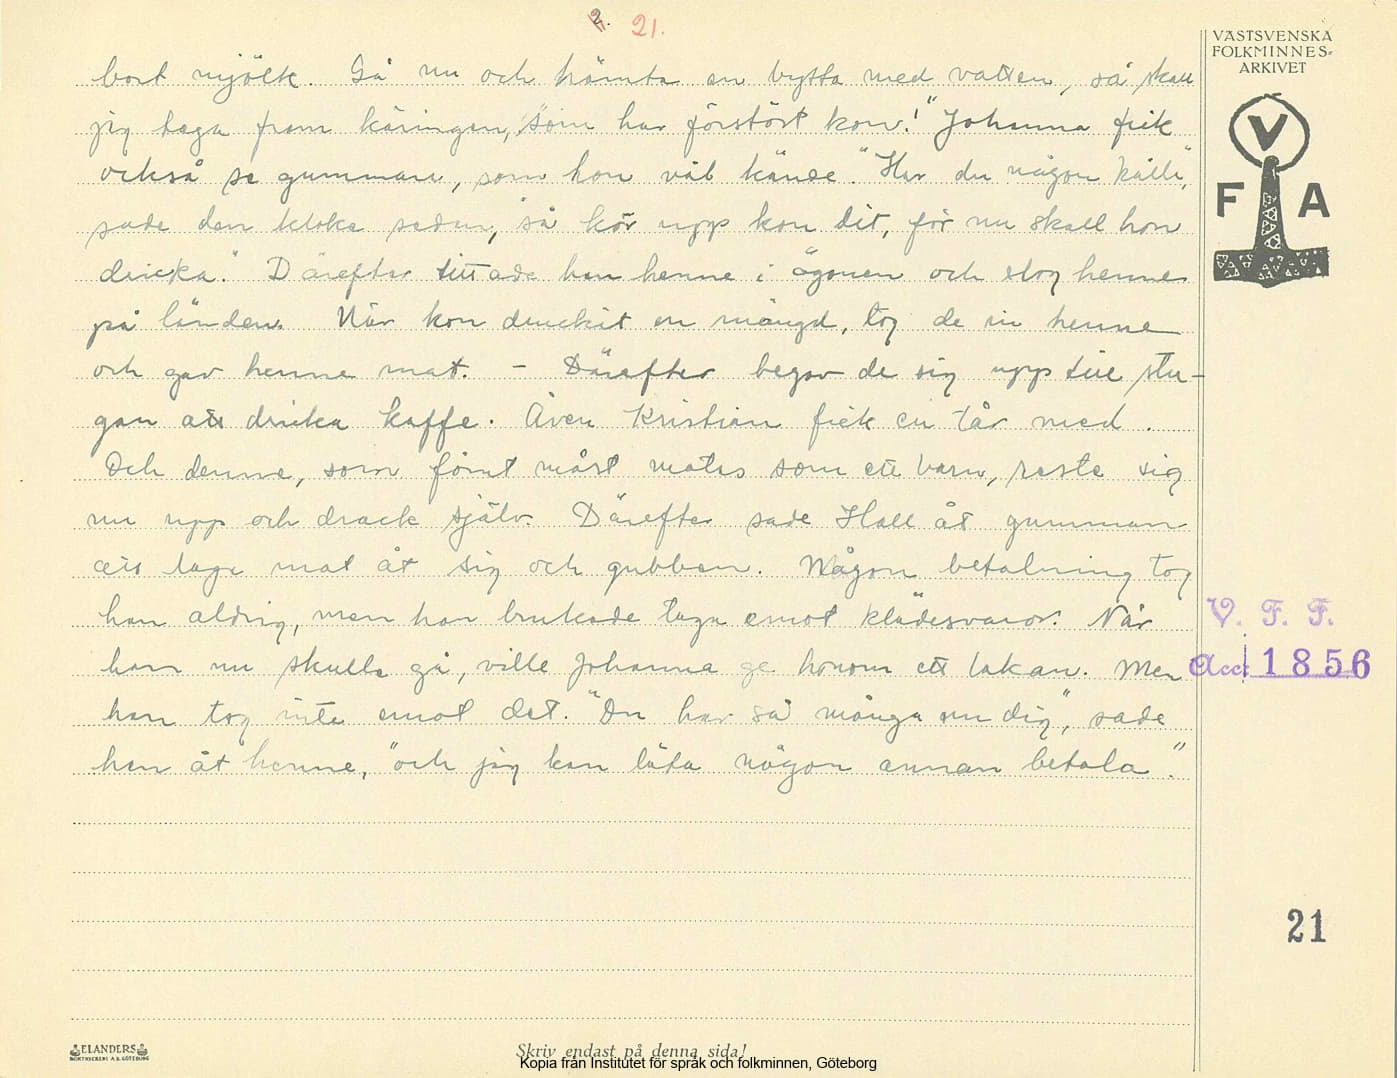 2. 21.
VÄSTSVENSKA
FOLKMINNES-
ARKIVET
V
F A
bort mjölk. Gå nu och hämta en bytta med vatten, så skall
jig taga fram käringen, som har förstört kon!" Johanna fick
också se gumman, som hon väl kände. "Har du någon källa",
sade den kloke sedan, "så kör upp kon dit, för nu skall hon
dricka." Därefter tittade han henne i ögonen och slog henne
på länden. När kon druckit en mängd, tog de in henne
och gav henne mat. – Därefter begav de sig upp till stu-
gan att dricka kaffe. Även Kristian fick en tår med.
Och denne, som förut måst matas som ett barn, reste sig
nu upp och drack själv. Därefter sade Hall åt gumman
att laga mat åt sig och gubben. Någon betalning tog
han aldrig, men han brukade taga emot klädesvaror. När
han nu skulle gå, ville Johanna ge honom ett lakan. Men
han tog inte emot det. "Du har så många om dig", sade
han åt henne, "och jag kan låta någon annan betala".
V. F. F.
Acc: 1856
21
ELANDERS
BOKTRYCKERI A.B. GÖTEBORG
Skriv endast på denna sida!
Kopia från Institutet för språk och folkminnen, Göteborg